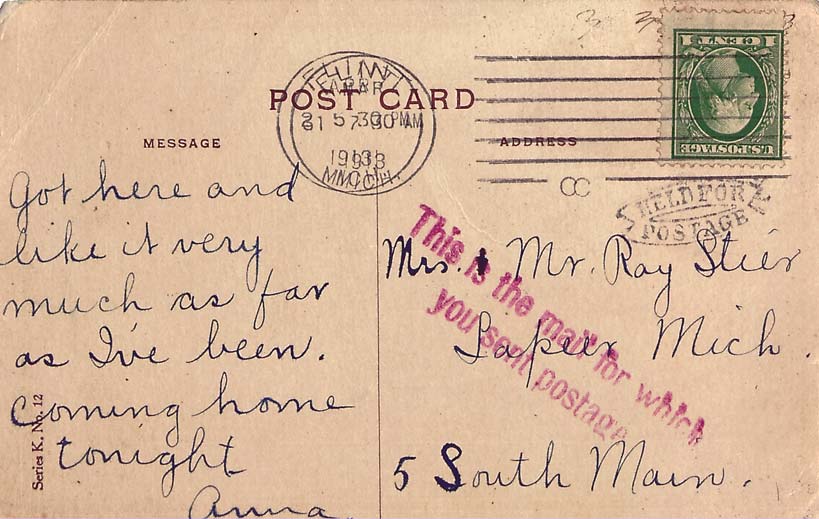 POST CARD
MESSAGE
ADDRESS
Got here and
like it very
much as far
as I've been.
Coming home
tonight
Anna
Series K. No. 12
FLINT
APR
1913
MICH.
1 CENT 1
U.S. POSTAGE
HELD FOR
POSTAGE
This is the mail for which
you sent postage
Mrs. Mr. Ray Stier
Lapeer Mich.
5 South Main.